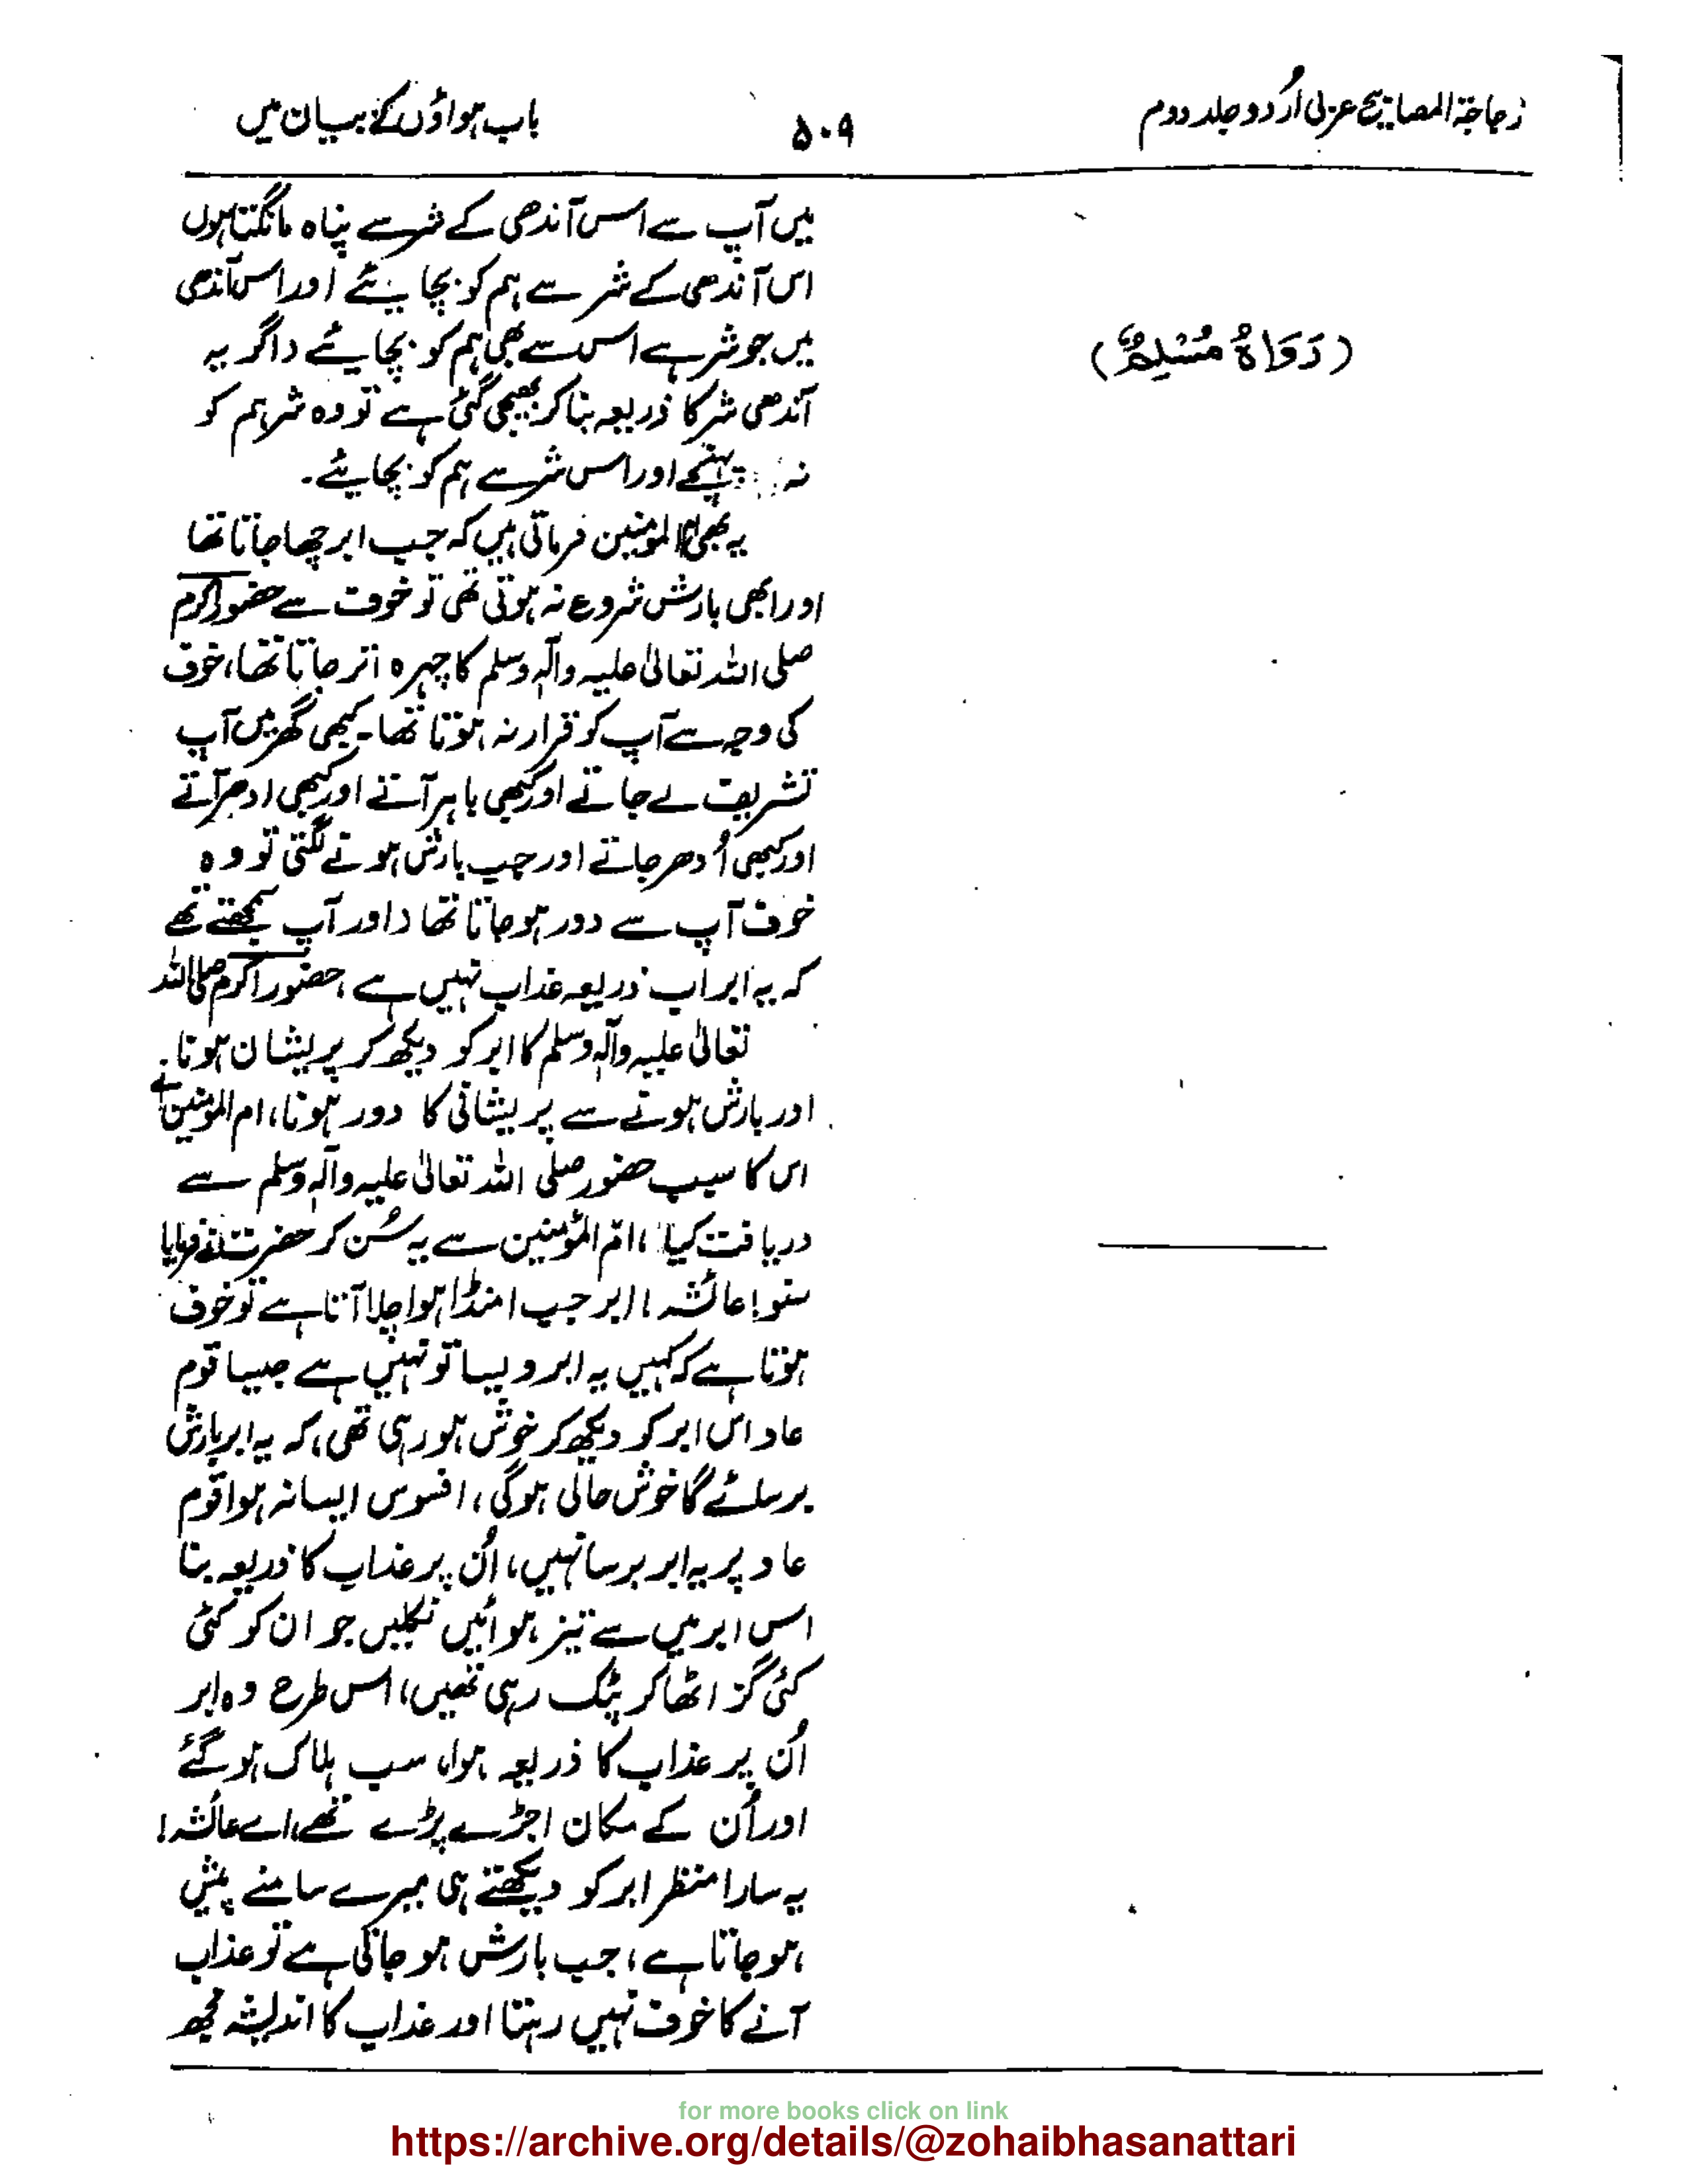 زجاجۃ المصابیح عربی اُردو جلد دوم
۵۰۹
باب ہواؤں کے بیان میں
(رَوَاہُ مُسْلِمٌ)
میں آپ سے اس آندھی کے شر سے پناہ مانگتا ہوں
اس آندھی کے شر سے ہم کو بچایئے اور اس آندھی
میں جو شر ہے اس سے بھی ہم کو بچایئے (اگر یہ
آندھی شر کا ذریعہ بنا کر بھیجی گئی ہے تو وہ شر ہم کو
نہ پہنچے اور اس شر سے ہم کو بچایئے۔
یہ بھی ام المومنین فرماتی ہیں کہ جب ابر چھا جاتا تھا
اور ابھی بارش شروع نہ ہوتی تھی تو خوف سے حضور اکرم
صلی اللہ تعالیٰ علیہ وآلہٖ وسلم کا چہرہ اتر جاتا تھا، خوف
کی وجہ سے آپ کو قرار نہ ہوتا تھا۔ کبھی گھر میں آپ
تشریف لے جاتے اور کبھی باہر آتے اور کبھی ادھر آتے
اور کبھی اُدھر جاتے اور جب بارش ہونے لگتی تو وہ
خوف آپ سے دور ہو جاتا تھا (اور آپ سمجھتے تھے
کہ یہ ابر اب ذریعہ عذاب نہیں ہے، حضور اکرم صلی اللہ
تعالیٰ علیہ وآلہٖ وسلم کا ابر کو دیکھ کر پریشان ہونا
اور بارش ہونے سے پریشانی کا دور ہونا، ام المؤمنین نے
اس کا سبب حضور صلی اللہ تعالیٰ علیہ وآلہٖ وسلم سے
دریافت کیا، امّ المؤمنین سے یہ سُن کر حضرت نے فرمایا
سنو! عائشہ! ابر جب امنڈا ہوا چلا آتا ہے تو خوف
ہوتا ہے کہ کہیں یہ ابر ویسا تو نہیں ہے جیسا قوم
عاد اس ابر کو دیکھ کر خوش ہو رہی تھی، کہ یہ ابر بارش
برسائے گا خوش حالی ہوگی، افسوس ایسا نہ ہوا قوم
عاد پر یہ ابر برسا نہیں، اُن پر عذاب کا ذریعہ بنا
اس ابر میں سے تیز ہوائیں نکلیں جو ان کو کئی
کئی گز اٹھا کر پٹک رہی تھیں، اس طرح وہ ابر
اُن پر عذاب کا ذریعہ ہوا، سب ہلاک ہو گئے
اور اُن کے مکان اجڑے پڑے تھے، اے عائشہ!
یہ سارا منظر ابر کو دیکھتے ہی میرے سامنے پیش
ہو جاتا ہے، جب بارش ہو جاتی ہے تو عذاب
آنے کا خوف نہیں رہتا اور عذاب کا اندیشہ مجھ
for more books click on link
https://archive.org/details/@zohaibhasanattari